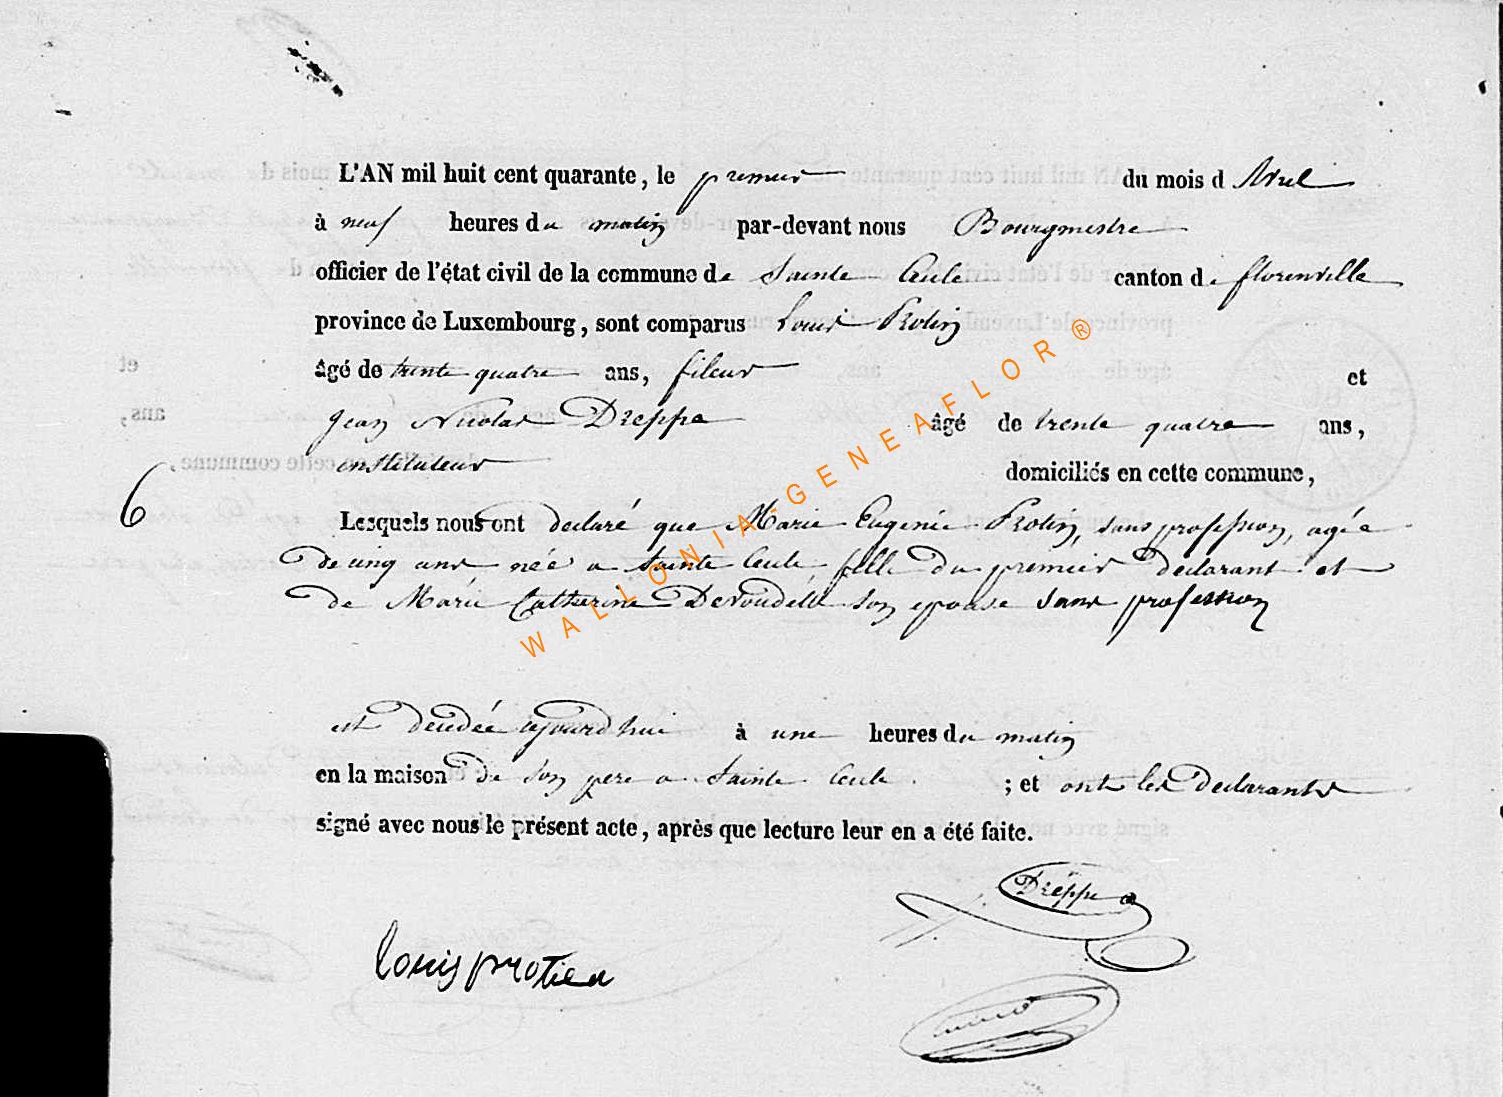 L'AN mil huit cent quarante, le premier du mois d Avril
à neuf heures du matin par-devant nous Bourgmestre
officier de l'état civil de la commune de Sainte Cecile canton de florenville
province de Luxembourg, sont comparus Louis Protin
âgé de trente quatre ans, fileur et
Jean Nicolas Dreppe âgé de trente quatre ans,
instituteur domiciliés en cette commune,
6
Lesquels nous ont declaré que Marie Eugenie Protin, sans profession, agée
De cinq ans née a Sainte Cecile, fille du premier declarant et
de Marie Catherine son epouse sans profession
est decedée aujourd'hui à une heures du matin
en la maison de son pere a Sainte Cecile ; et ont les declarants
signé avec nous le présent acte, après que lecture leur en a été faite.
Dreppe
louis protien
WALLONIA-GENEAFLOR ®